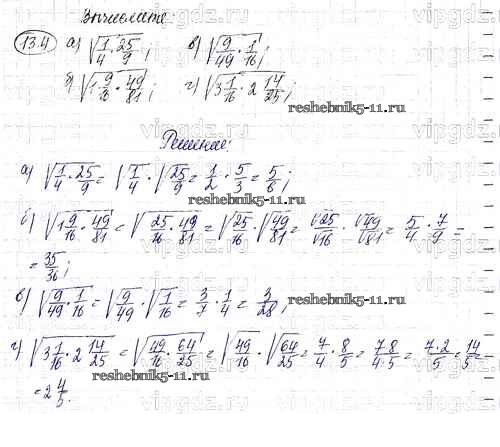 Вычислите
13.4 а) √(1/4 · 25/9); в) √(9/49 · 1/16);
б) √(1 9/16 · 49/81); г) √(3 1/16 · 2 14/25);
reshebnik5-11.ru
Решение:
а) √(1/4 · 25/9) = √(1/4) · √(25/9) = 1/2 · 5/3 = 5/6;
reshebnik5-11.ru
б) √(1 9/16 · 49/81) = √(25/16 · 49/81) = √(25/16) · √(49/81) = √25/√16 · √49/√81 = 5/4 · 7/9 =
= 35/36;
в) √(9/49 · 1/16) = √(9/49) · √(1/16) = 3/7 · 1/4 = 3/28;
reshebnik5-11.ru
г) √(3 1/16 · 2 14/25) = √(49/16 · 64/25) = √(49/16) · √(64/25) = 7/4 · 8/5 = 7·8/4·5 = 7·2/5 = 14/5 =
= 2 4/5.
reshebnik5-11.ru